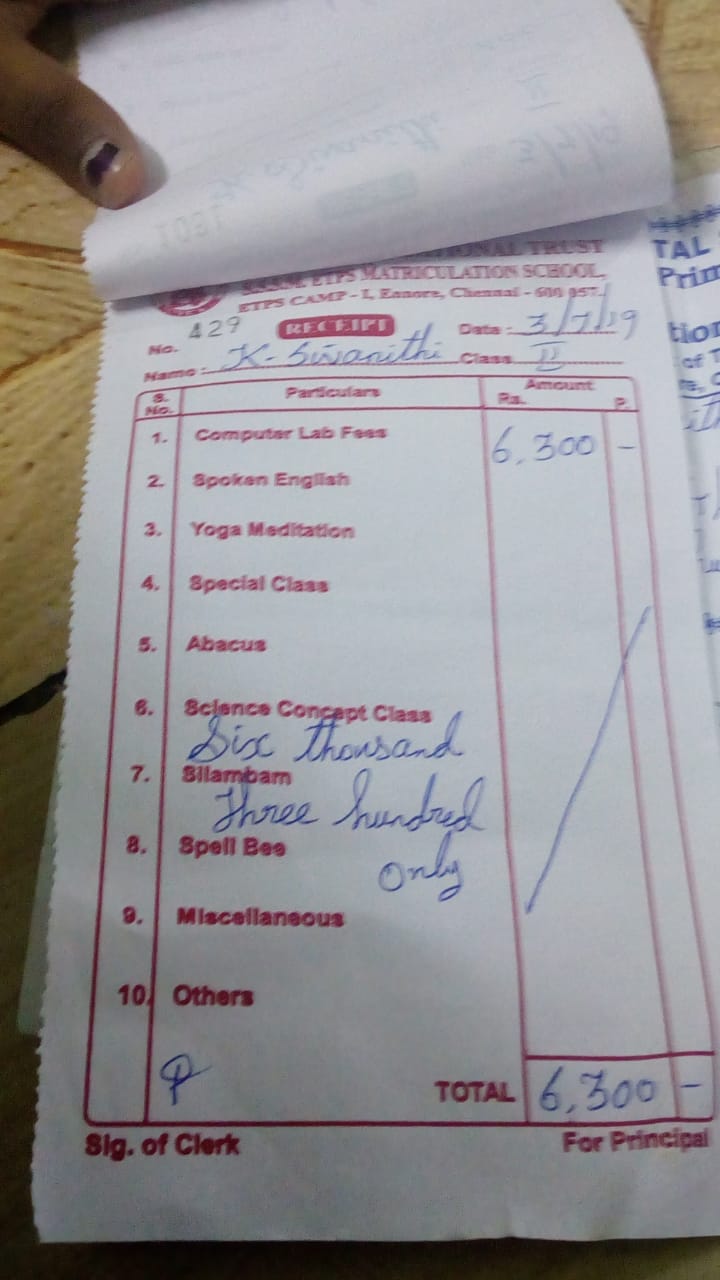 ONAL TRUST
ETPS MATRICULATION SCHOOL,
ETPS CAMP - I, Ennore, Chennai - 600 057.
No. 429 RECEIPT Date : 3/7/19
Name : K. Sivanithi Class II
S. No. Particulars Amount Rs. P.
1. Computer Lab Fees 6,300 -
2. Spoken English
3. Yoga Meditation
4. Special Class
5. Abacus
6. Science Concept Class
Six thousand
7. Silambam
Three hundred
8. Spell Bee
Only
9. Miscellaneous
10. Others
TOTAL 6,300 -
Sig. of Clerk For Principal
TAL
Prin
tion
of T